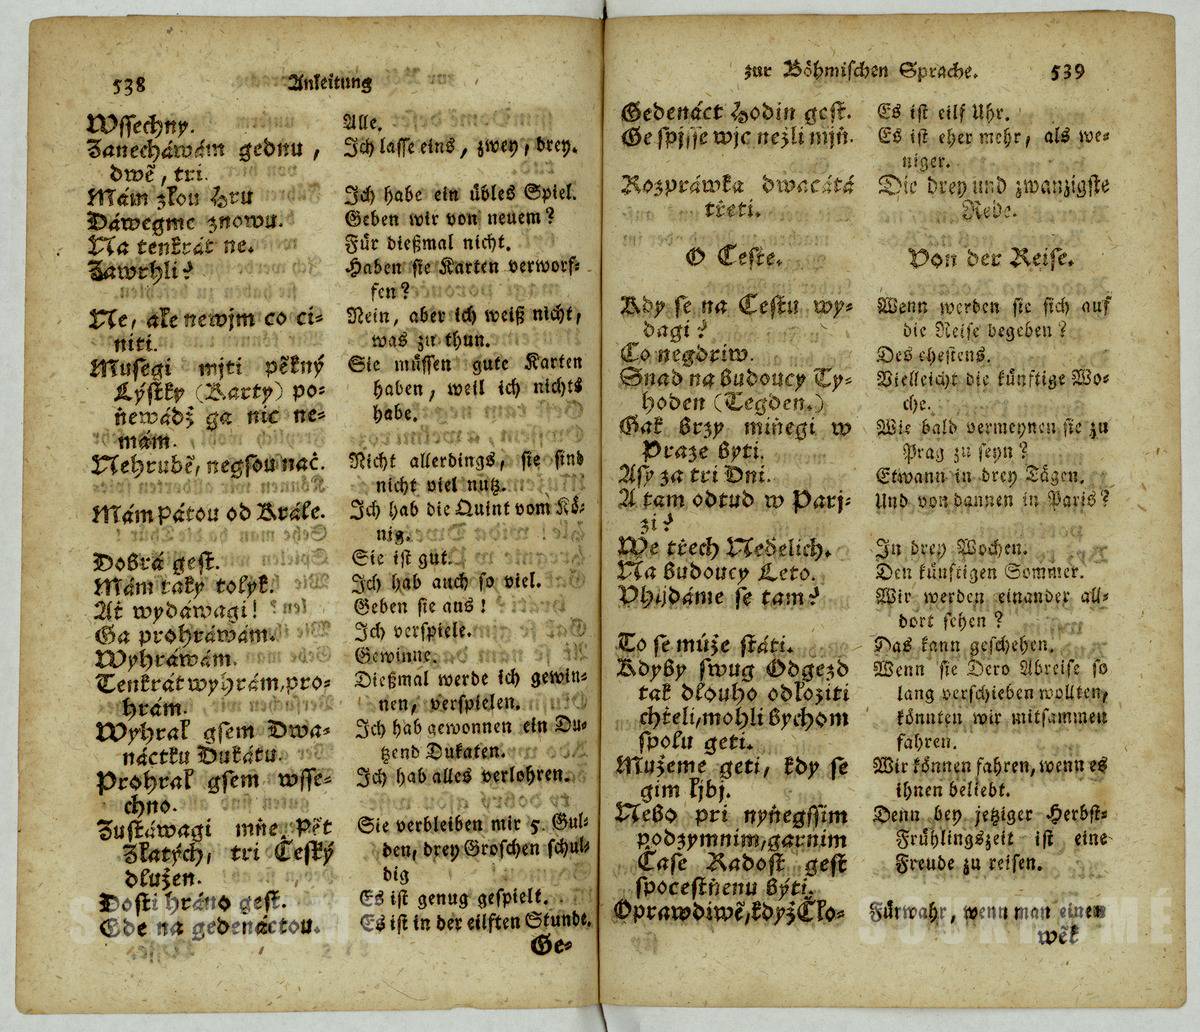 538 Anleitung
Wssechny.
Zanecháwám gednu,
dwě, tri.
Mám zlou Hru
Dáwegme znowu.
Na tenkrát ne.
Zawrhli?
Ne, ale newjm co ci-
niti.
Musegi mjti pěkný
Lýstky (Karty) po-
ňewádž ga nic ne-
mám.
Nehrubě, negsou nač.
Mám pátou od Krále.
Dobrá gest.
Mám taky tolyk.
Ať wydáwagi!
Ga prohráwám.
Wyhráwám.
Tenkrát wyhrám, pro-
hrám.
Wyhral gsem Dwa-
náctku Dukátu.
Prohral gsem wsse-
chno.
Zustáwagi mňe Pět
Zlatých, tri Český
dlužen.
Dosti hráno gest.
Gde na gedenáctou.
Alle.
Ich lasse eins, zwey, drey.
Ich habe ein übles Spiel.
Geben wir von neuem?
Für dießmal nicht.
Haben sie Karten verworf-
fen?
Nein, aber ich weiß nicht,
was zu thun.
Sie müssen gute Karten
haben, weil ich nichts
habe.
Nicht allerdings, sie sind
nicht viel nutz.
Ich hab die Quint vom Kö-
nig.
Sie ist gut.
Ich hab auch so viel.
Geben sie aus!
Ich verspiele.
Gewinne.
Dießmal werde ich gewin-
nen, verspielen.
Ich hab gewonnen ein Du-
tzend Dukaten.
Ich hab alles verlohren.
Sie verbleiben mir 5. Gul-
den, drey Groschen schul-
dig
Es ist genug gespielt.
Es ist in der eilften Stunde.
Ge-
zur Böhmischen Sprache. 539
Gedenáct Hodin gest.
Ge spjsse wjc nežli mjň.
Rozpráwka dwacátá
třeti.
O Ceste.
Kdy se na Cestu wy-
dagi?
Co negdriw.
Snad na budoucy Ty-
hoden (Tegden.)
Gak brzy miňegi w
Praze byti.
Asy za tri Dni.
A tam odtud w Parj-
zi?
We třech Nedelich.
Na budoucy Leto.
Vhljdáme se tam?
To se může státi.
Kdyby swug Odgezd
tak dlouho odložiti
chtěli, mohli bychom
spolu geti.
Mužeme geti, kdy se
gim ljbj.
Nebo pri nyňegssim
podzymnim, garnim
Čase Radost gest
spocestňenu býti.
Oprawdiwě, když Člo-
Es ist eilf Uhr.
Es ist eher mehr, als we-
niger.
Die drey und zwanzigste
Rede.
Von der Reise.
Wenn werden sie sich auf
die Reise begeben?
Des ehestens.
Vielleicht die künftige Wo-
che.
Wie bald vermeynen sie zu
Prag zu seyn?
Etwann in drey Tägen.
Und von dannen in Paris?
In drey Wochen.
Den künftigen Sommer.
Wir werden einander all-
dort sehen?
Das kann geschehen.
Wenn sie Dero Abreise so
lang verschieben wollten,
könnten wir mitsammen
fahren.
Wir können fahren, wenn es
ihnen beliebt.
Denn bey jetziger Herbst-
Frühlingszeit ist eine
Freude zu reisen.
Fürwahr, wenn man einen
wěk